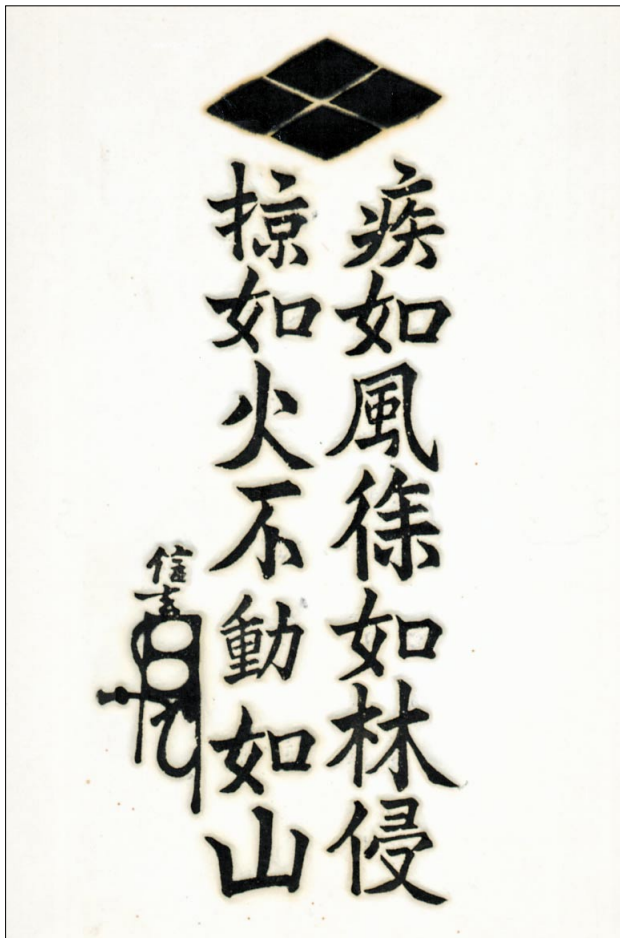 疾如風徐如林侵
掠如火不動如山
信玄